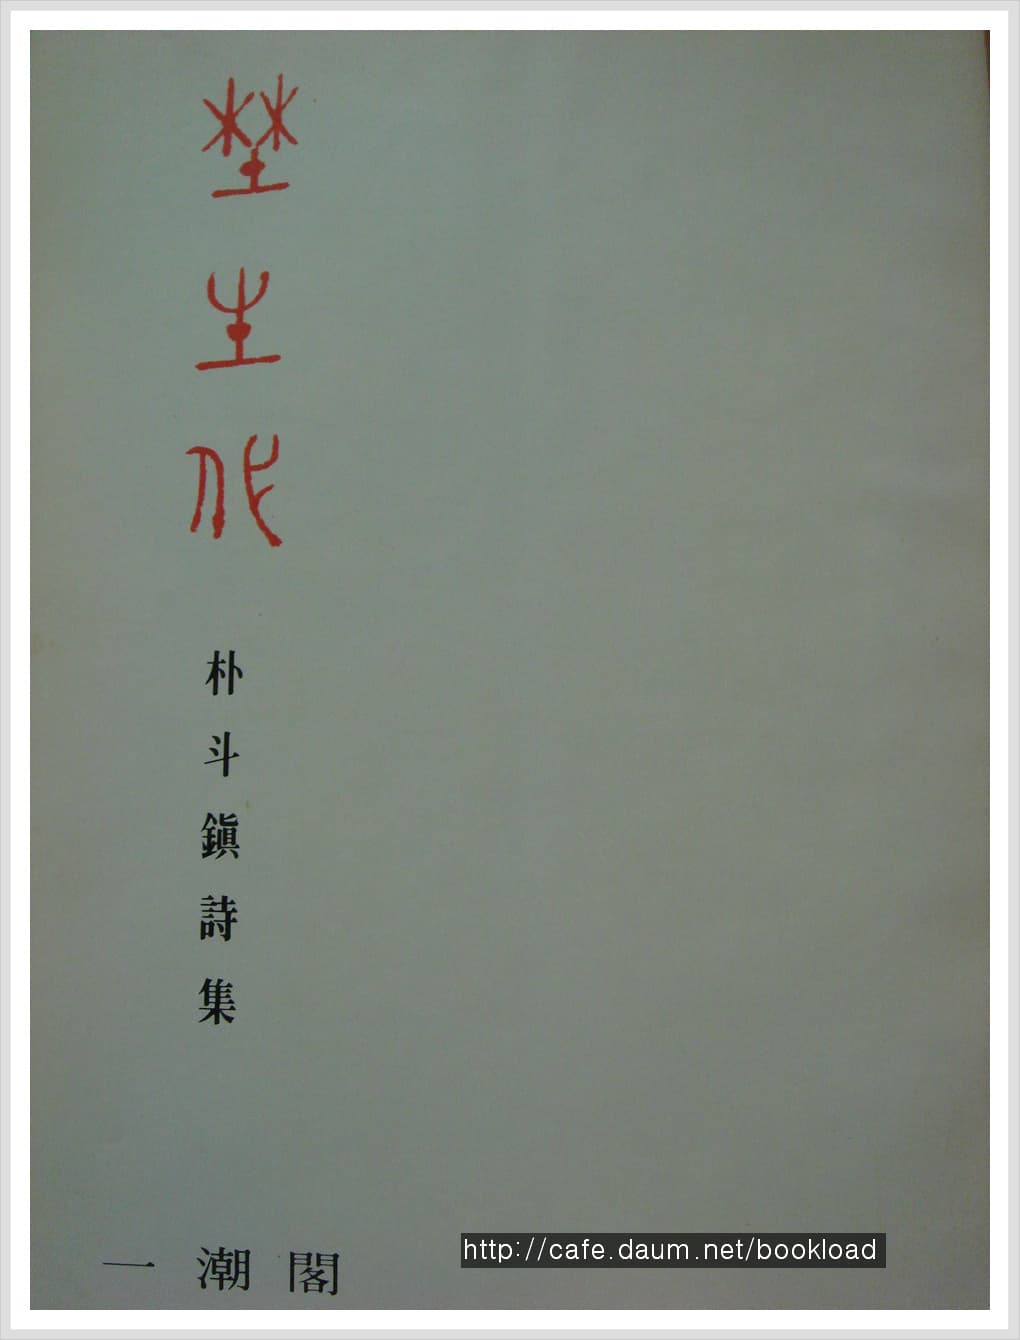 埜生代
朴斗鎭詩集
一潮閣
http://cafe.daum.net/bookload